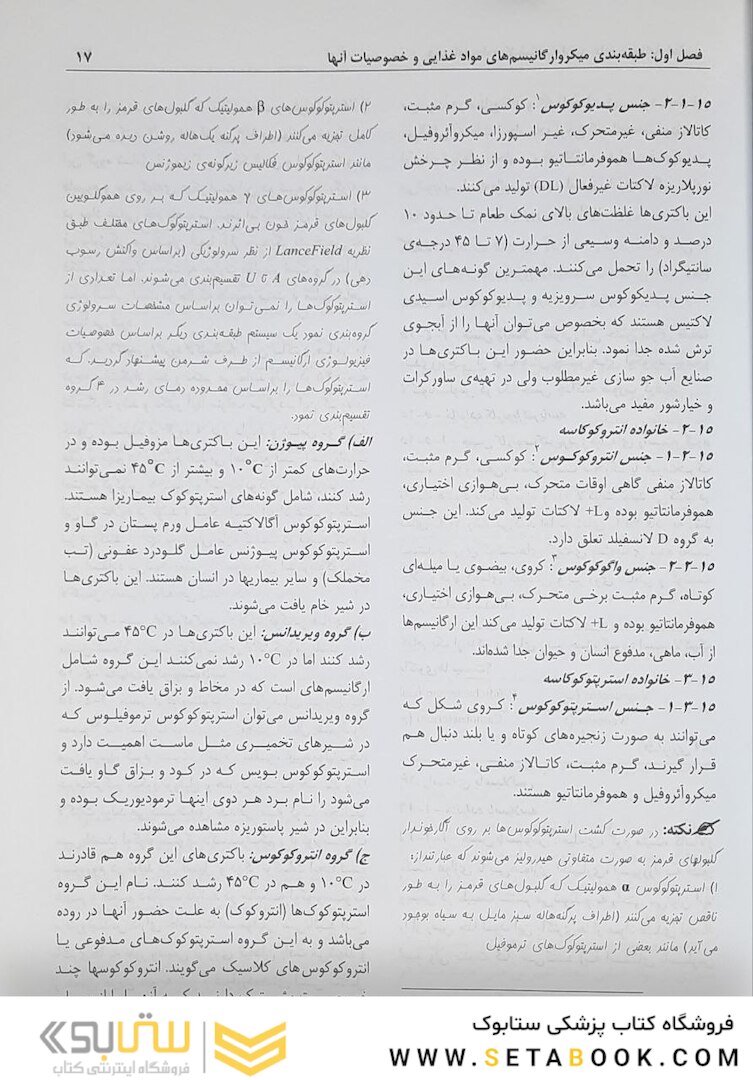 فصل اول: طبقه‌بندی میکروارگانیسم‌های مواد غذایی و خصوصیات آنها
۱۷
۱۵-۱-۲- جنس پدیوکوکوس۱: کوکسی، گرم مثبت،
کاتالاز منفی، غیرمتحرک، غیر اسپورزا، میکروآئروفیل،
پدیوکوک‌ها هموفرمانتاتیو بوده و از نظر چرخش
نورپلاریزه لاکتات غیرفعال (DL) تولید می‌کنند.
این باکتری‌ها غلظت‌های بالای نمک طعام تا حدود ۱۰
درصد و دامنه وسیعی از حرارت (۷ تا ۴۵ درجه‌ی
سانتیگراد) را تحمل می‌کنند. مهمترین گونه‌های این
جنس پدیکوکوس سرویزیه و پدیوکوکوس اسیدی
لاکتیس هستند که بخصوص می‌توان آنها را از آبجوی
ترش شده جدا نمود. بنابراین حضور این باکتری‌ها در
صنایع آب جو سازی غیرمطلوب ولی در تهیه‌ی ساورکرات
و خیارشور مفید می‌باشد.
۱۵-۲- خانواده انتروکوکاسه
۱۵-۲-۱- جنس انتروکوکوس۲: کوکسی، گرم مثبت،
کاتالاز منفی گاهی اوقات متحرک، بی‌هوازی اختیاری،
هموفرمانتاتیو بوده و L+ لاکتات تولید می‌کند. این جنس
به گروه D لانسفیلد تعلق دارد.
۱۵-۲-۲- جنس واگوکوکوس۳: کروی، بیضوی یا میله‌ای
کوتاه، گرم مثبت برخی متحرک، بی‌هوازی اختیاری،
هموفرمانتاتیو بوده و L+ لاکتات تولید می‌کند این ارگانیسم‌ها
از آب، ماهی، مدفوع انسان و حیوان جدا شده‌اند.
۱۵-۳- خانواده استرپتوکوکاسه
۱۵-۳-۱- جنس استرپتوکوکوس۴: کروی شکل که
می‌توانند به صورت زنجیره‌های کوتاه و یا بلند دنبال هم
قرار گیرند، گرم مثبت، کاتالاز منفی، غیرمتحرک
میکروآئروفیل و هموفرمانتاتیو هستند.
نکته: در صورت کشت استرپتوکوکوس‌ها بر روی آگارخوندار
گلبولهای قرمز به صورت متفاوتی هیدرولیز می‌شوند که عبارتنداز:
۱) استرپتوکوکوس α همولیتیک که گلبول‌های قرمز را به طور
ناقص تجزیه می‌کنند (اطراف پرگنه‌هاله سبز مایل به سیاه بوجود
می‌آید) مانند بعضی از استرپتوکوک‌های ترموفیل
۲) استرپتوکوکوس‌های β همولیتیک که گلبول‌های قرمز را به طور
کامل تجزیه می‌کنند (اطراف پرگنه یک‌هاله روشن دیده می‌شود)
مانند استرپتوکوکوس فکالیس زیرگونه‌ی زیموژنس
۳) استرپتوکوکوس‌های γ همولیتیک که بر روی هموگلوبین
گلبول‌های قرمز خون بی‌اثرند. استرپتوکوک‌های مختلف طبق
نظریه LanceField از نظر سرولوژیکی (براساس واکنش رسوب
دهی) در گروه‌های A تا U تقسیم‌بندی می‌شوند. اما تعدادی از
استرپتوکوک‌ها را نمی‌توان براساس مشخصات سرولوژی
گروه‌بندی نمود یک سیستم طبقه‌بندی دیگر براساس خصوصیات
فیزیولوژی ارگانیسم از طرف شرمن پیشنهاد گردید. که
استرپتوکوک‌ها را براساس محدوده دمای رشد در ۴ گروه
تقسیم‌بندی نمود.
الف) گروه پیوژن: این باکتری‌ها مزوفیل بوده و در
حرارت‌های کمتر از ۱۰°C و بیشتر از ۴۵°C نمی‌توانند
رشد کنند، شامل گونه‌های استرپتوکوک بیماریزا هستند.
استرپتوکوکوس آگالاکتیه عامل ورم پستان در گاو و
استرپتوکوکوس پیوژنس عامل گلودرد عفونی (تب
مخملک) و سایر بیماریها در انسان هستند. این باکتری‌ها
در شیر خام یافت می‌شوند.
ب) گروه ویریدانس: این باکتری‌ها در ۴۵°C می‌توانند
رشد کنند اما در ۱۰°C رشد نمی‌کنند این گروه شامل
ارگانیسم‌های است که در مخاط و بزاق یافت می‌شود. از
گروه ویریدانس می‌توان استرپتوکوکوس ترموفیلوس که
در شیرهای تخمیری مثل ماست اهمیت دارد و
استرپتوکوکوس بویس که در کود و بزاق گاو یافت
می‌شود را نام برد هر دوی اینها ترمودیوریک بوده و
بنابراین در شیر پاستوریزه مشاهده می‌شوند.
ج) گروه انتروکوکوس: باکتری‌های این گروه هم قادرند
در ۱۰°C و هم در ۴۵°C رشد کنند. نام این گروه
استرپتوکوک‌ها (انتروکوک) به علت حضور آنها در روده
می‌باشد و به این گروه استرپتوکوک‌های مدفوعی یا
انتروکوکوس‌های کلاسیک می‌گویند. انتروکوکوسها چند
فروشگاه کتاب پزشکی ستابوک
WWW.SETABOOK.COM
ستابوک
فروشگاه اینترنتی کتاب